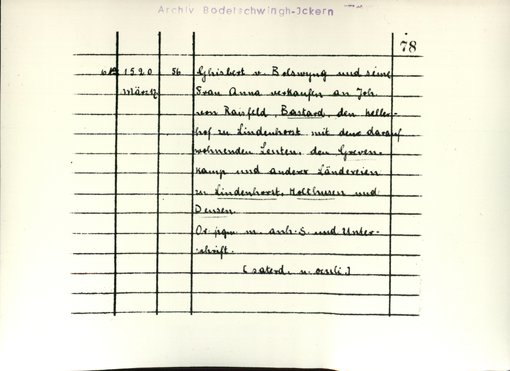 Archiv Bodelschwingh-Ickern
78
1520 56 Ghisbert v. Bolswyng und seine
März Frau Anna verkaufen an Joh.
von Raisfeld, Bastard, den Keller-
hof zu Lindenhorst mit den darauf
wohnenden Leuten, den Greven-
kamp und anderer Ländereien
zu Lindenhorst, Holthusen und
Deusen.
Or. pgm. m. anh. S. und Unter-
schrift.
(saterd. n. oculi.)